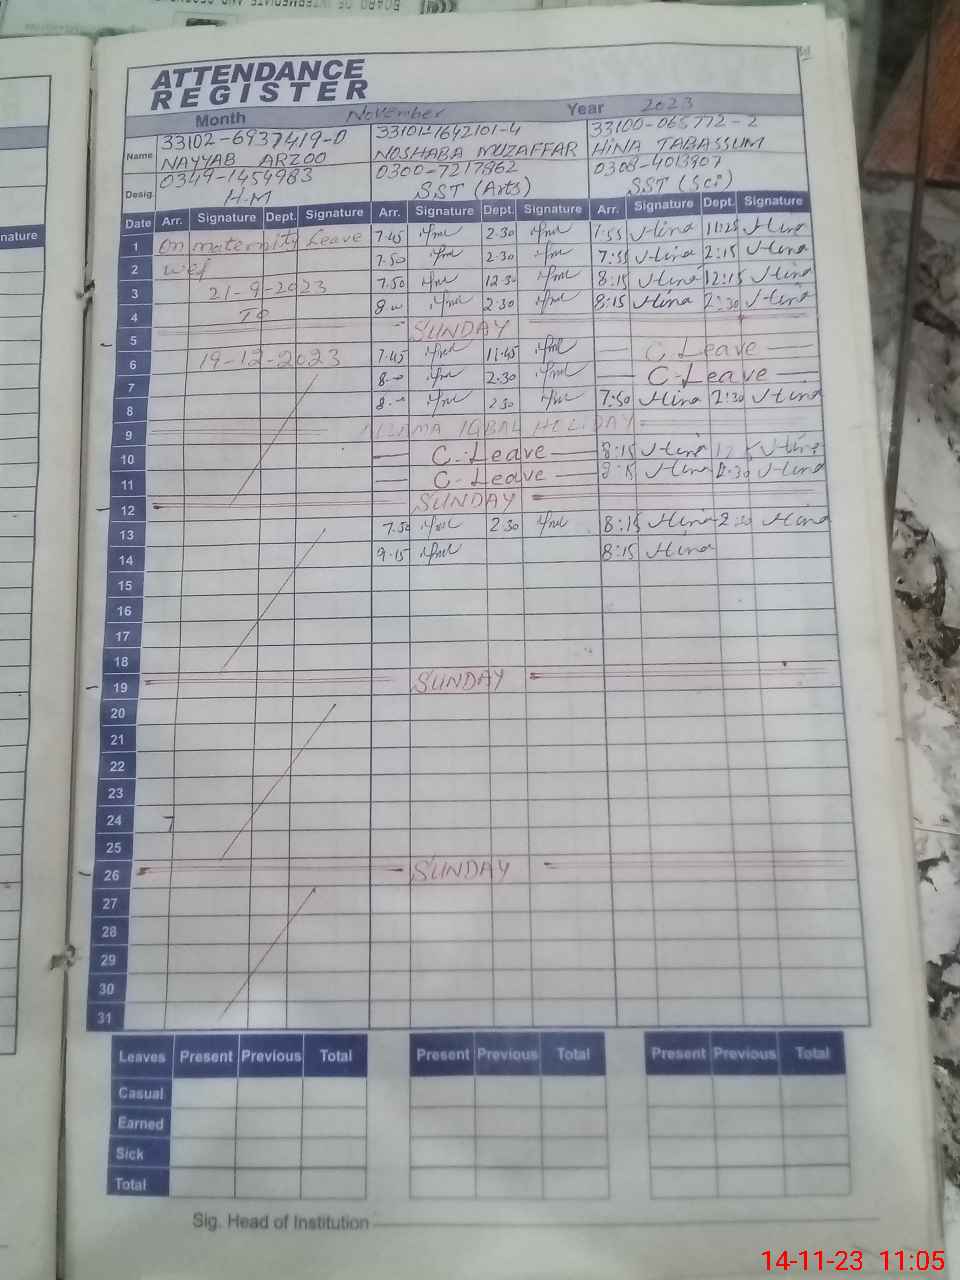 ATTENDANCE
REGISTER
Month November Year 2023
Name 33102-6937419-0 33101-1642101-4 33100-065772-2
NAYYAB ARZOO NOSHABA MUZAFFAR HINA TABASSUM
Desig. 0349-1454983 0300-7217862 0308-4013907
H.M SST (Arts) SST (Sci)
Date Arr. Signature Dept. Signature Arr. Signature Dept. Signature Arr. Signature Dept. Signature
1 On maternity Leave 7.45 2.30 Hina 11:25 Hina
2 wef 7.50 2.30 7:55 Hina 2:15 Hina
3 21-9-2023 7.50 12.30 8:15 Hina 12:15 Hina
4 TO 8.00 2.30 8:15 Hina 2:30 Hina
5 SUNDAY
6 19-12-2023 7.45 11.45 C. Leave
7 8.00 2.30 C-Leave
8 8.00 2.30 7:50 Hina 2:30 Hina
9 IQBAL HOLIDAY
10 C. Leave 8:15 Hina Hina
11 C. Leave 8:15 Hina 2:30 Hina
12 SUNDAY
13 7.50 2.30 8:15 Hina 2:30 Hina
14 9.15 8:15 Hina
15
16
17
18
19 SUNDAY
20
21
22
23
24
25
26 SUNDAY
27
28
29
30
31
Leaves Present Previous Total Present Previous Total Present Previous Total
Casual
Earned
Sick
Total
Sig. Head of Institution
14-11-23 11:05